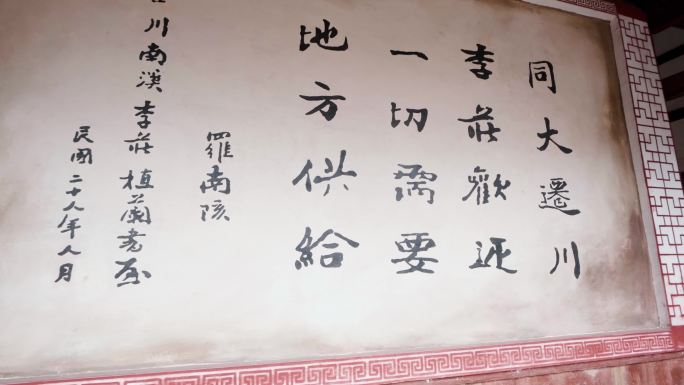 同大遷川
李莊歡迎
一切需要
地方供給
羅南陔
川南漢李莊植蘭書屋
民國二十八年八月